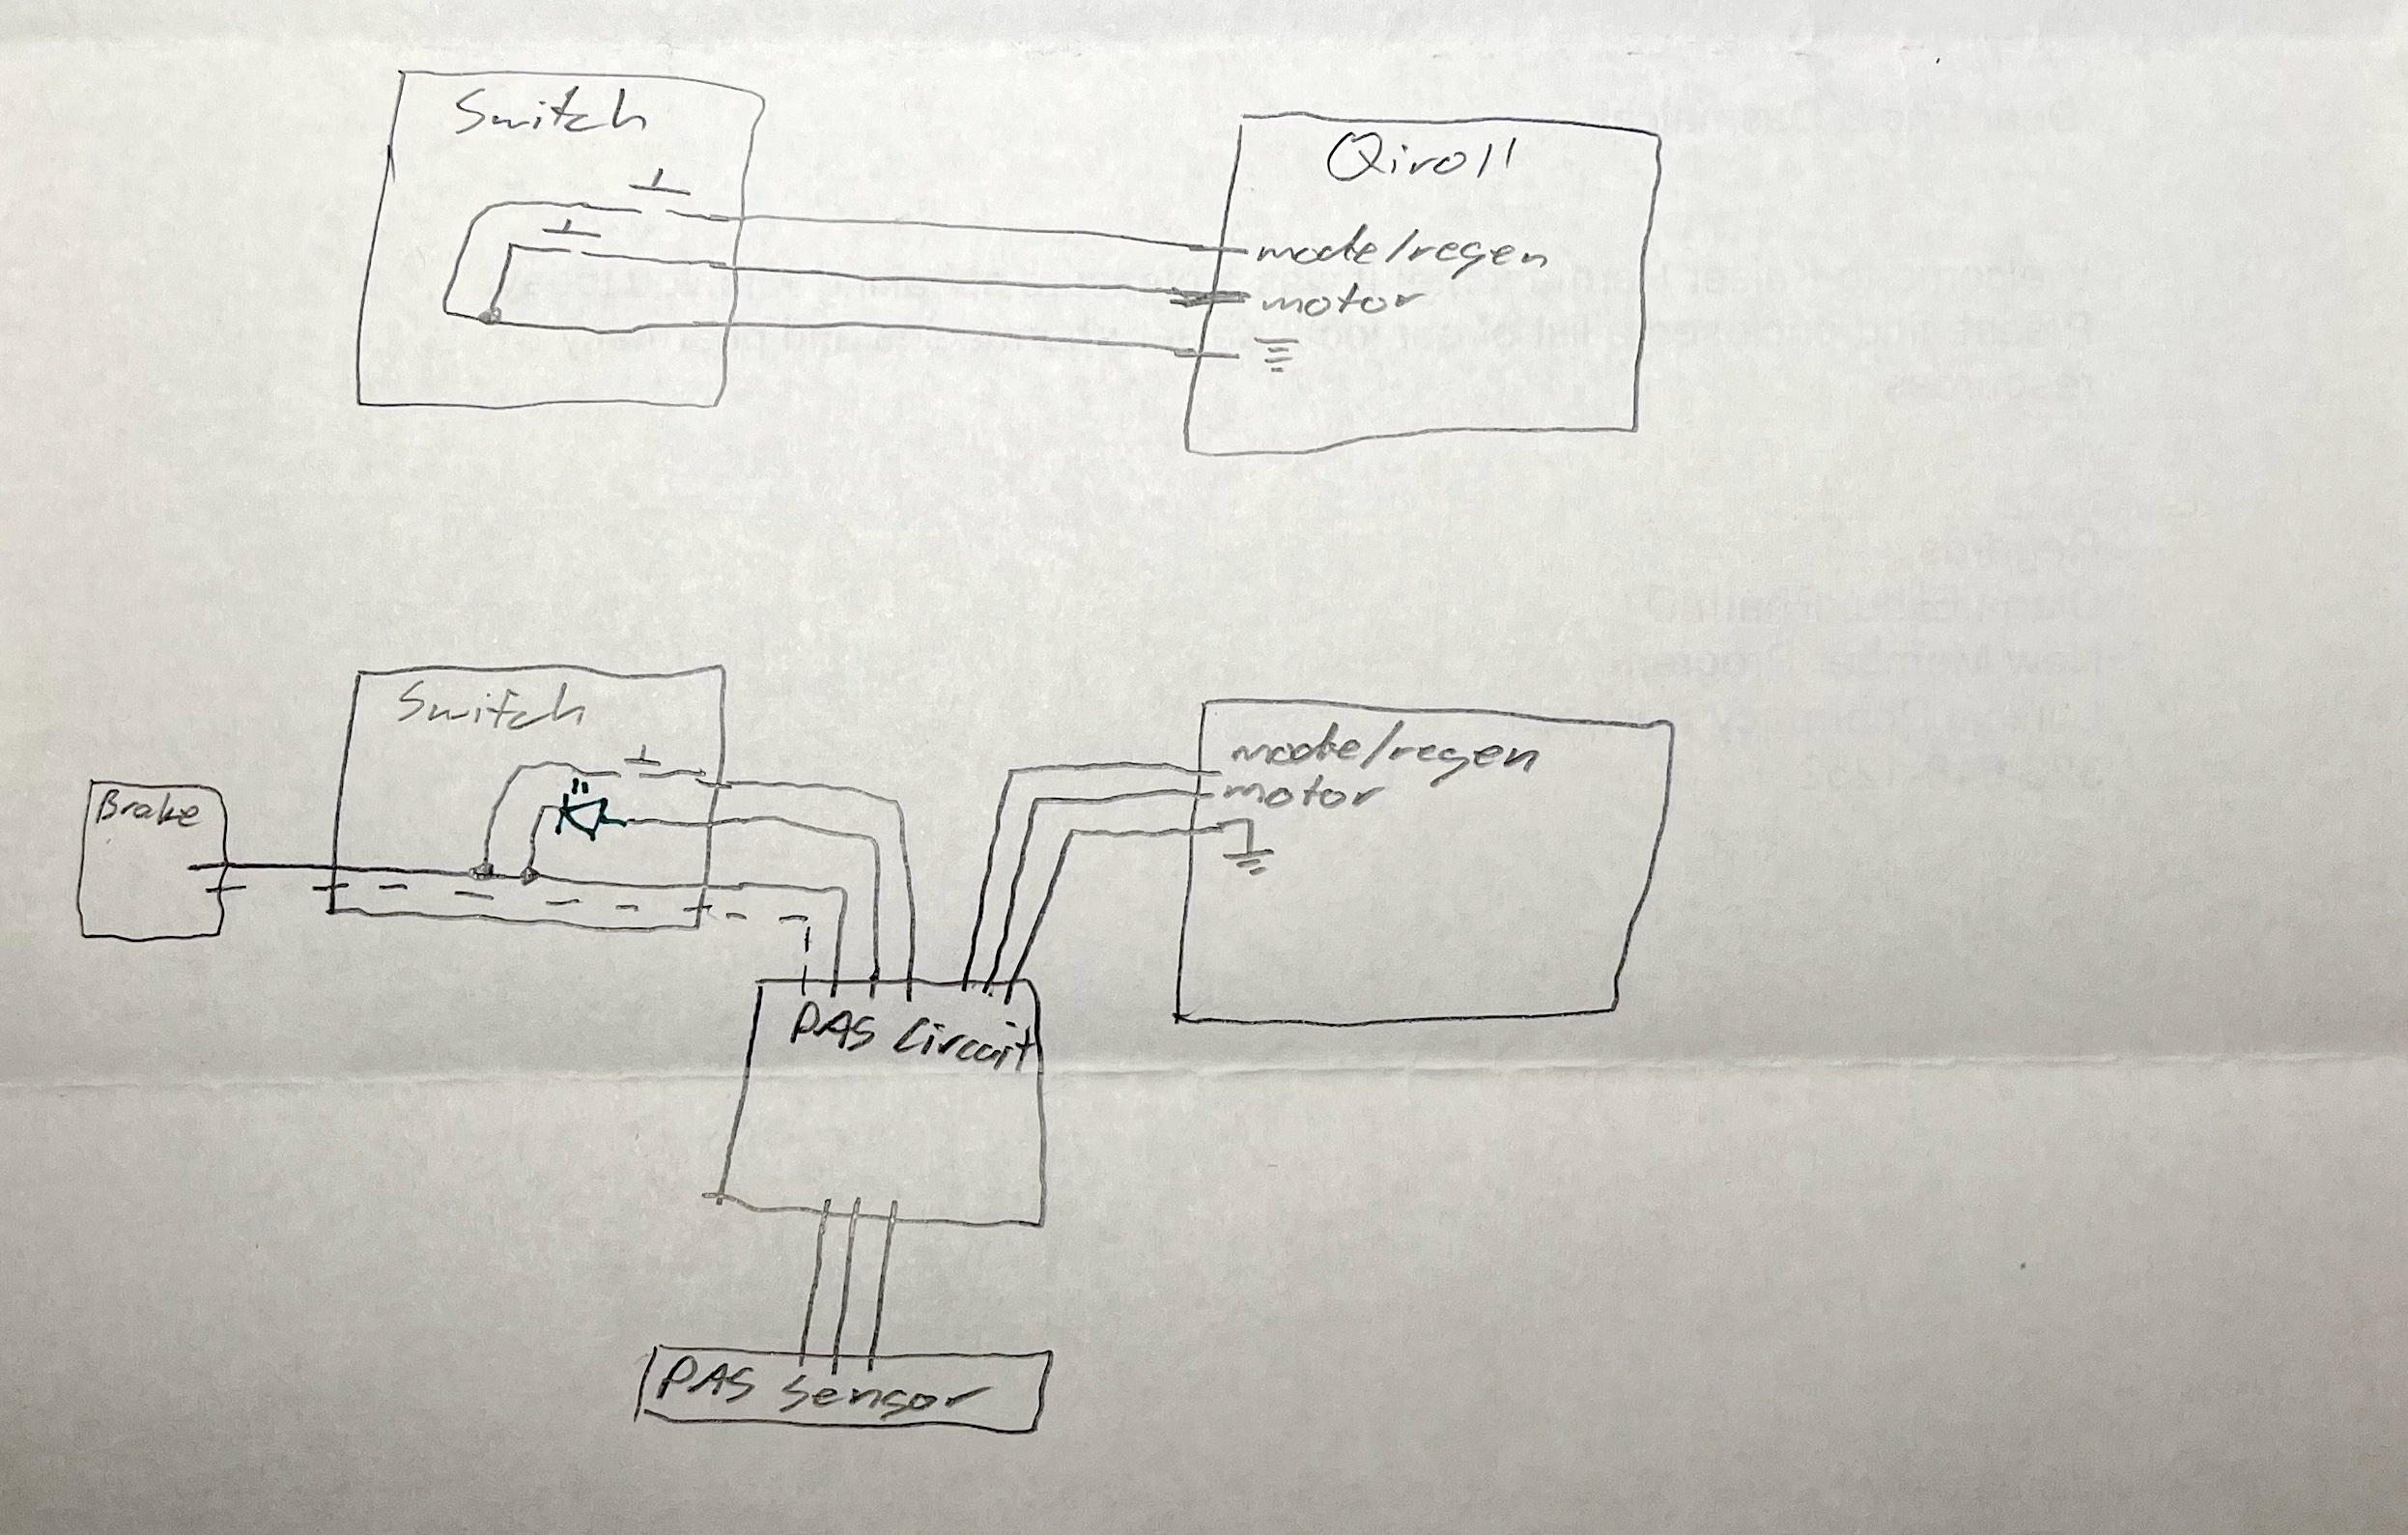 Switch
Qiroll
mode/regen
motor
Switch
mode/regen
motor
Brake
PAS Circuit
PAS Sensor